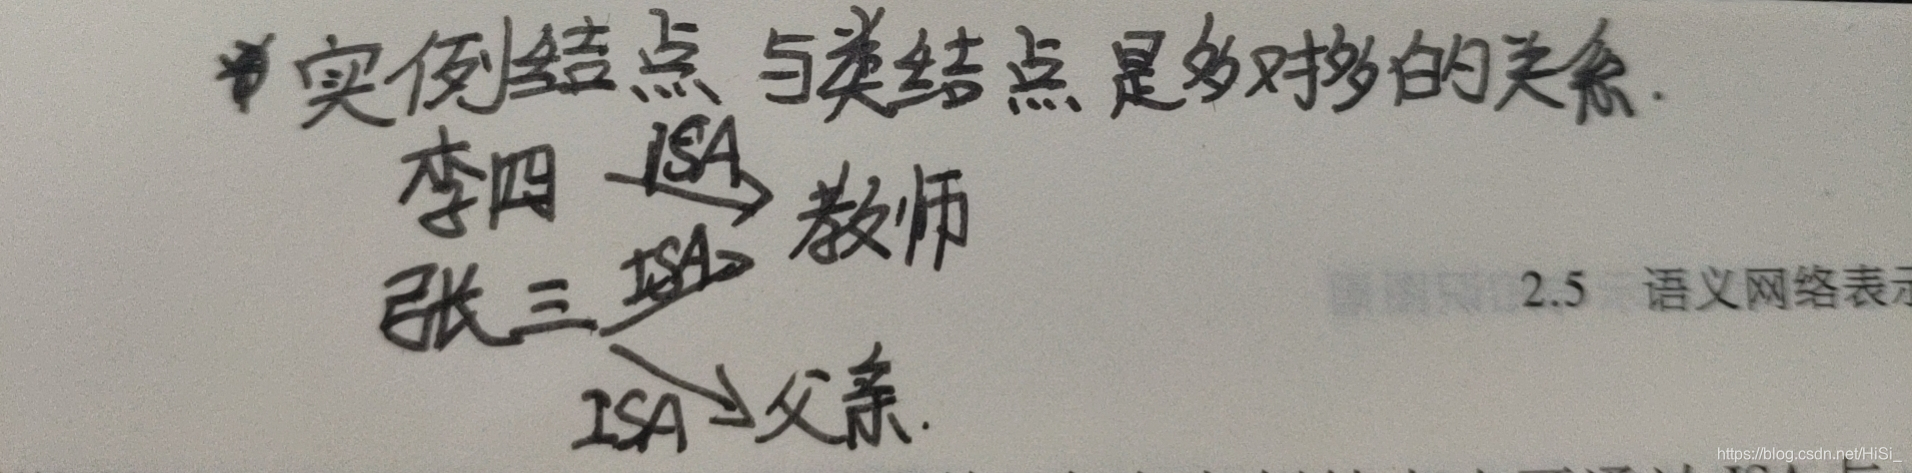 * 实例结点与类结点是多对多的关系.
李四 ISA 教师
张三 ISA
ISA 父亲.
2.5 语义网络表示
https://blog.csdn.net/HiSi_